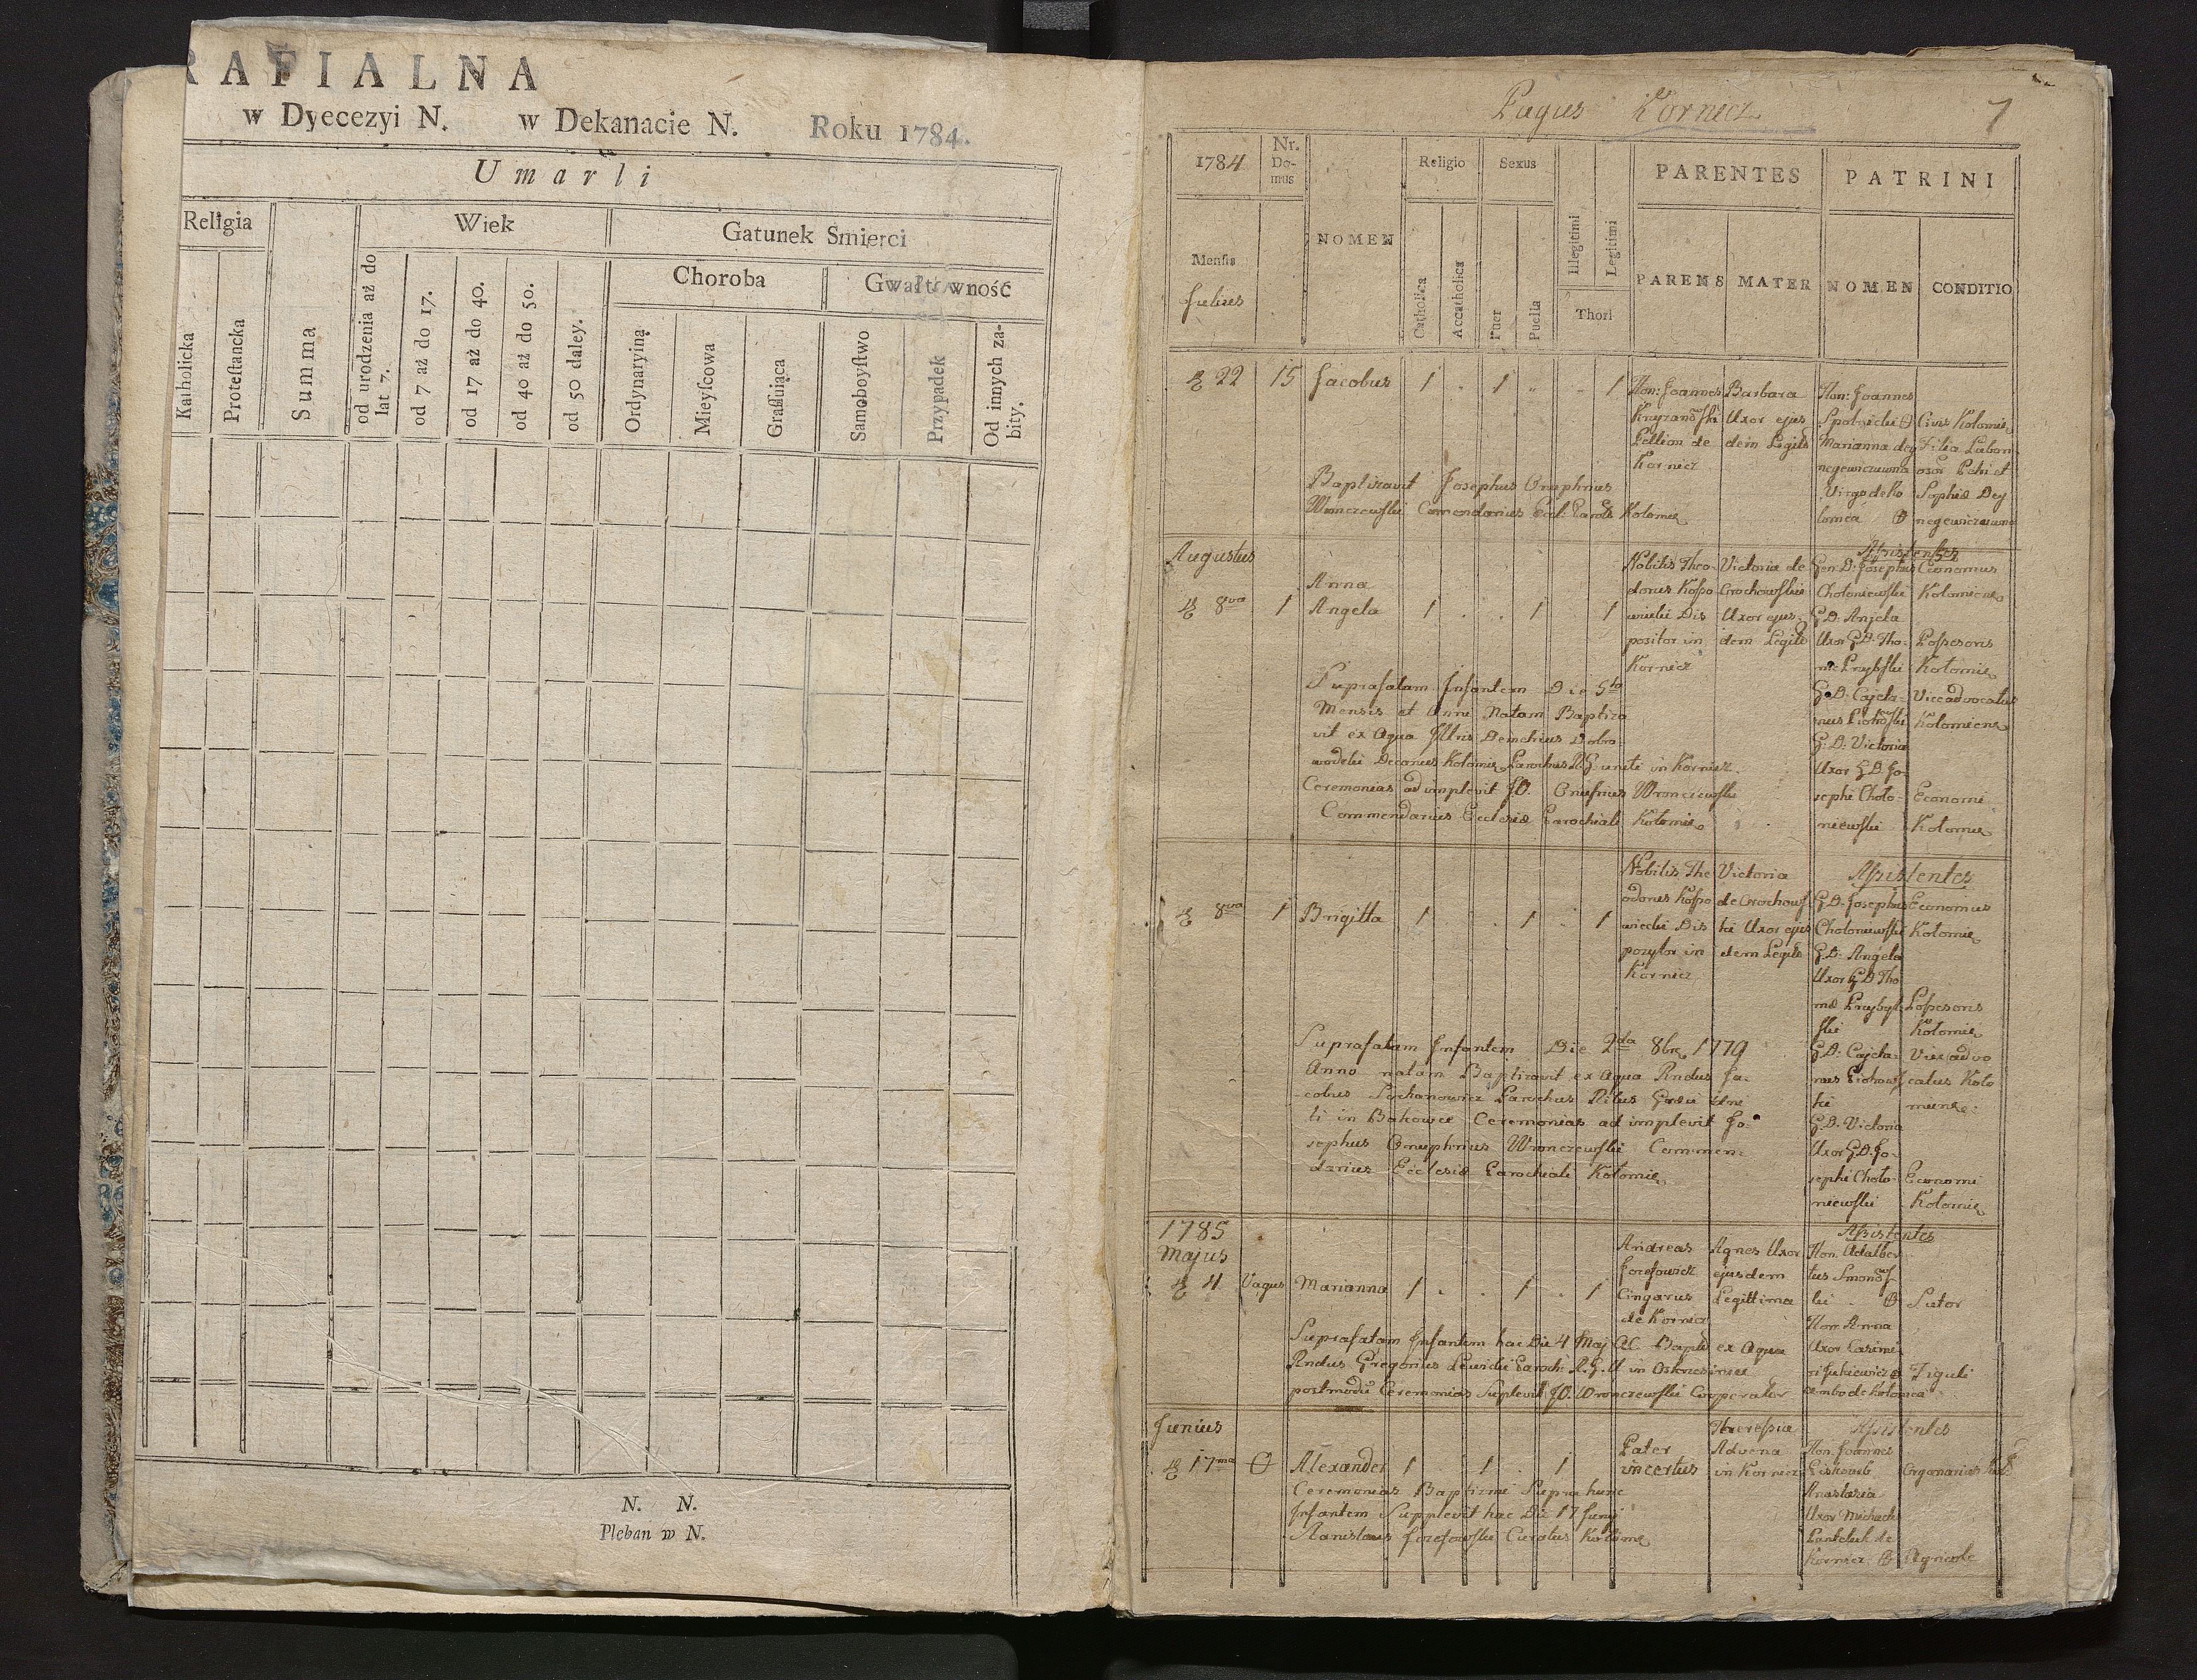 RAFIALNA
w Dyecezyi N. w Dekanacie N. Roku 1784.
Umarli
Religia
Summa
Wiek
Gatunek Smierci
Katholicka
Proteſtancka
od urodzenia aż do lat 7.
od 7 aż do 17.
od 17 aż do 40.
od 40 aż do 50.
od 50 daley.
Choroba
Gwałtowność
Ordynaryiną
Mieyſcowa
Graſſuiąca
Samoboyſtwo
Przypadek
Od innych zabity.
N. N.
Pleban w N.
Pagus Kornicz
7
1784
Nr. Domus
NOMEN
Religio
Sexus
Illegitimi
Legitimi
Thori
PARENTES
PATRINI
Mensis
Julius
Catholica
Accatholica
Puer
Puella
PARENS
MATER
NOMEN
CONDITIO
22 15 Jacobus 1 . 1 . . 1
Hon: Joannes
Kornicz
Barbara
Uxor ejus
dem Legit
Hon: Joannes
Marianna
Virgo de Ko
lomea
Civis Kolomie
Filia
Petri et
Sophiæ Dey
negewiczowna
Baptizavit Josephus Onuphrius
Wronczewski Comendarius Eccl: Kolomie
Augustus
8va 1 Anna
Angela 1 . . 1 1
Nobilis Theo
dorus Kosso
wiecki Dis
positor in
Kornicz
Victoria de
Grochowskie
Uxor ejus
dem Legit
Assistentes
G: D: Josephus
Choloniewski
G:D: Anjela
Uxor G:D: Tho
G:D: Cajeta
G: D: Victoria
Uxor G:D: Jo
sephi Cholo
niewski
Economus
Kolomiens
Possesoris
Kolomie
Viceadvocatus
Kolomiens
Economi
Kolomie
Suprafatam Infantem Die 5ta
Mensis et Anni Natam Baptiza
vit ex Aqua Demetrius Dobro
wodzki Decanus Kolomie Parochus R:G: uniti in Kornicz.
Ceremonias adimplevit J.O. Onufrius Wronczewski
Commendarius Ecclesiæ Parochiali Kolomie
8va 1 Brigitta 1 . . 1 . 1
Nobilis The
odorus Kosso
wiecki Dis
pozytor in
Kornicz
Victoria
de Grochows
ki Uxor ejus
dem Legit
Assistentes
G:D: Josephus
Choloniewski
G:D: Angela
Uxor G:D Tho
mæ Przybyl
ski
G:D: Cajeta
ki
G:D: Victoria
Uxor G:D: Jo
sephi Cholo
niewski
Economus
Kolomie
Possesoris
Kolomie
Vice advo
catus Kolo
miens
Economi
Kolomie
Suprafatam Infantem Die 2da 8bre 1779
Anno natam Baptizavit ex Aqua Rndus Ja
cobus Parochus Ritus Græci Uni
ti in Ceremonias ad implevit Jo
sephus Onuphrius Wronczewski Commen
darius Ecclesiæ Parochiali Kolomie
1785
Majus
4 Vagus Marianna 1 . . 1 . 1
Andreas
Jozefowicz
Cingarus
de Kornicz
Agnes Uxor
ejusdem
Legittima
Assistentes
Hon. Adalber
tus
Hon: Anna
Uxor Casimi
ambo de Kolomea
Sutor
Figuli
Suprafatam Infantem hac Die 4 Maj ex Aqua
Rndus Gregorius Lewicki Paroch: R.G.U in
postmodu Ceremonias Suplevit J.O. Wronczewski Cooperator
Junius
17ma Alexander 1 . 1 . 1
Pater
incertus
Theressia
Advena
in Kornicz
Assistentes
Hon: Joannes
Anastazia
Uxor Michaeli
Kornicz
Organarius
Agricolæ
Ceremonias Baptismi Supra hunc
Infantem Supplevit hac Die 17 Junij
Stanislaus Jozefowski Curatus Kolome